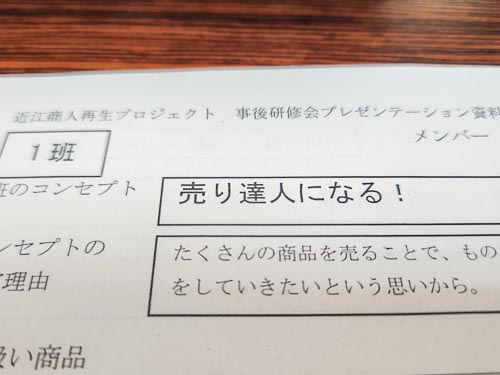 近江商人再生プロジェクト 事後研修会プレゼンテーション資料
メンバー
1班
班のコンセプト
売り達人になる!
ンセプトの
理由
たくさんの商品を売ることで、もの
をしていきたいという思いから。
扱い商品